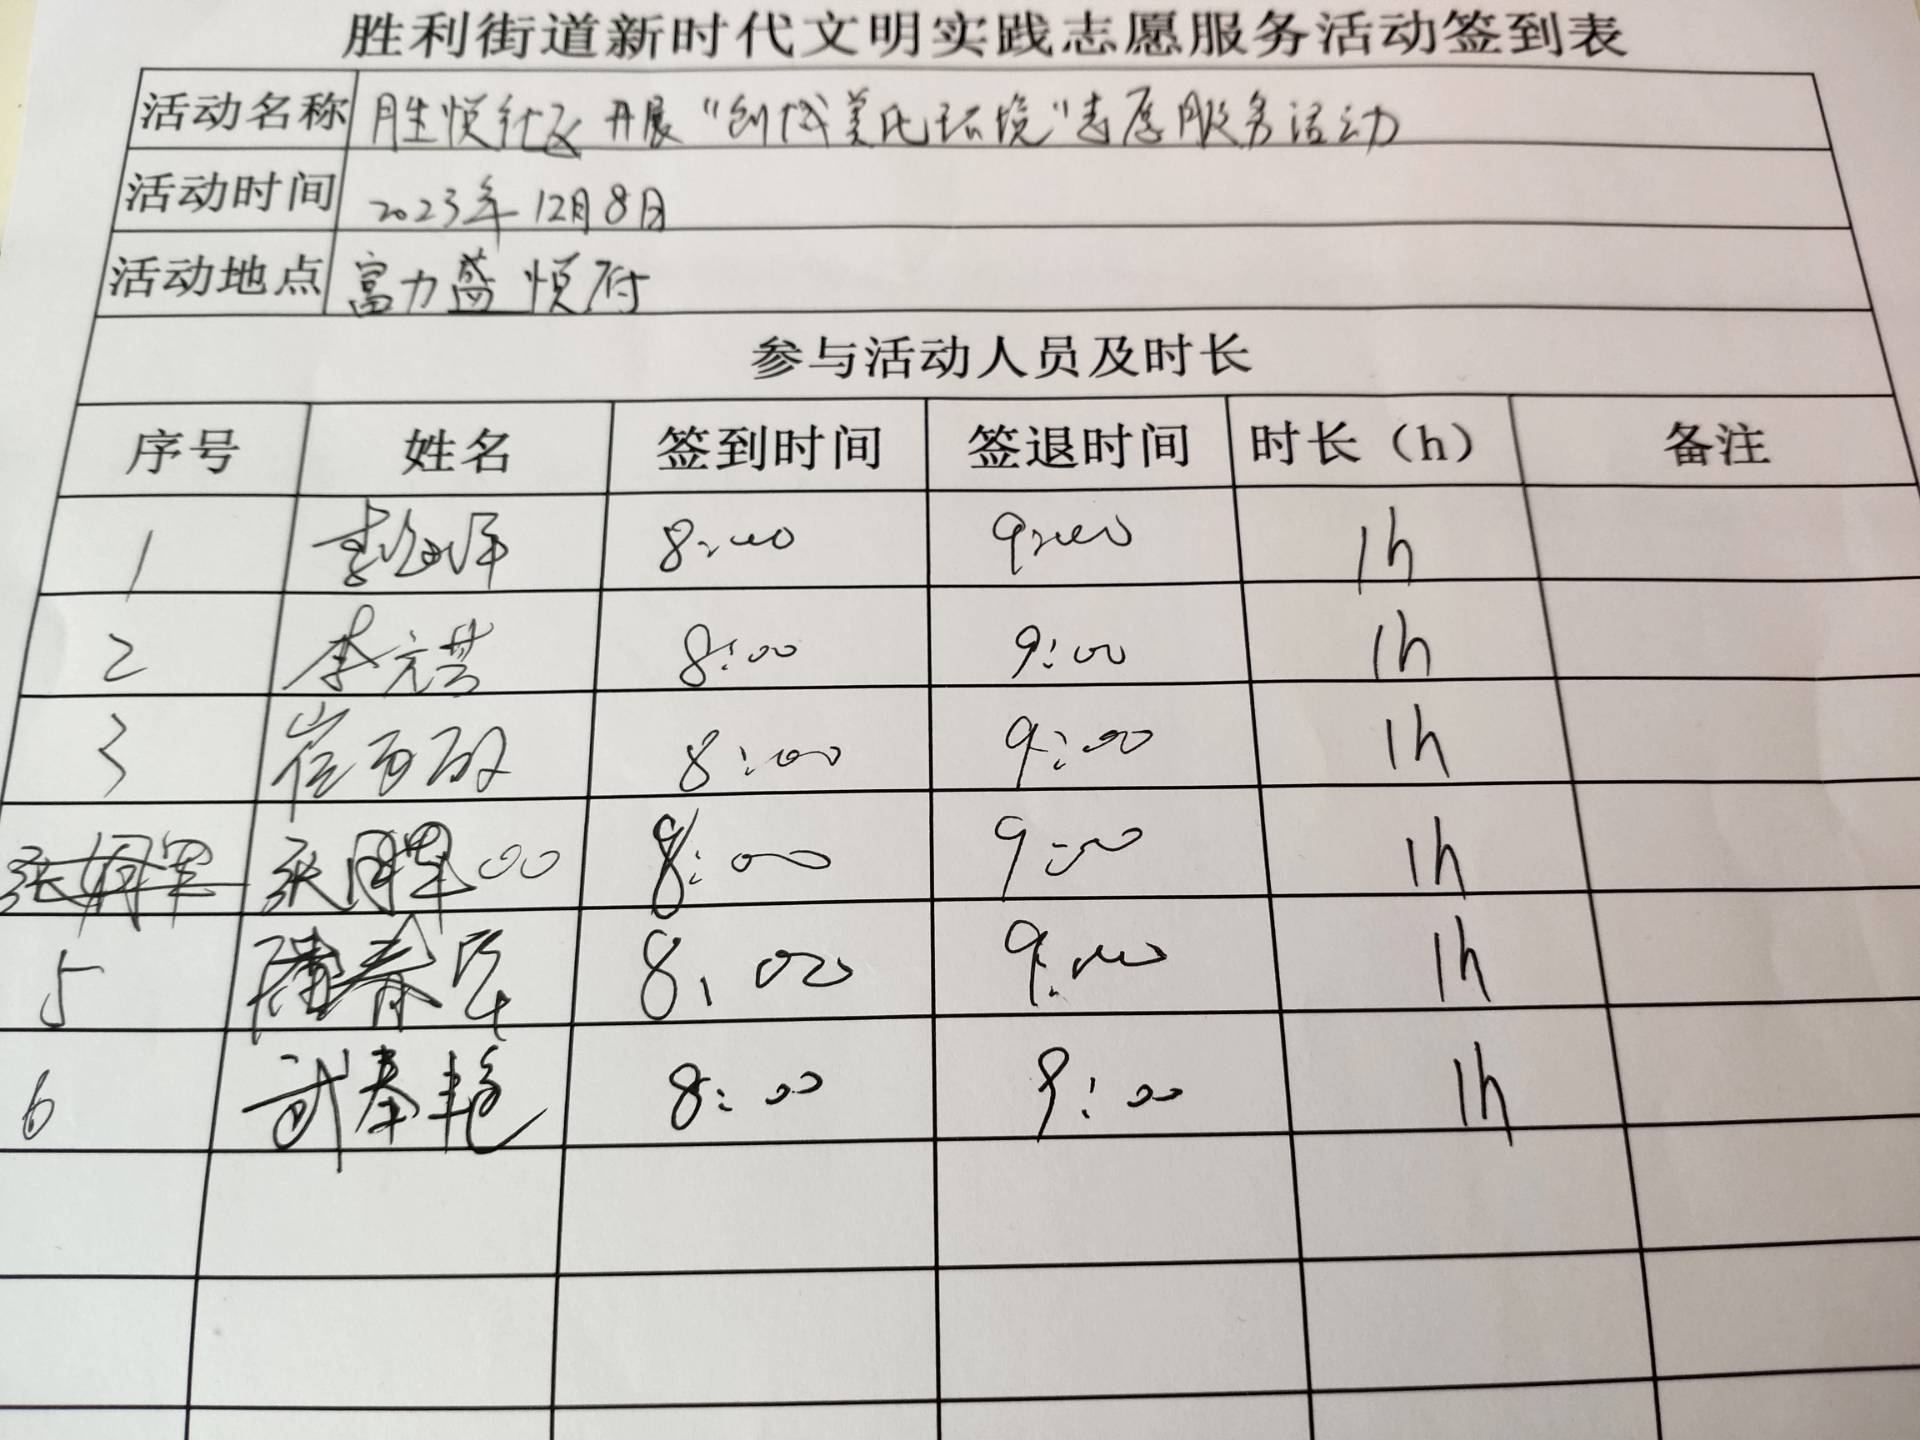 胜利街道新时代文明实践志愿服务活动签到表
活动名称 胜悦社区开展“创城美化环境”志愿服务活动
活动时间 2023年12月8日
活动地点 富力盛悦府
参与活动人员及时长
序号 姓名 签到时间 签退时间 时长（h） 备注
1 8:00 9:00 1h
2 李元芸 8:00 9:00 1h
3 8:00 9:00 1h
8:00 9:00 1h
5 8:00 9:00 1h
6 武春艳 8:00 9:00 1h